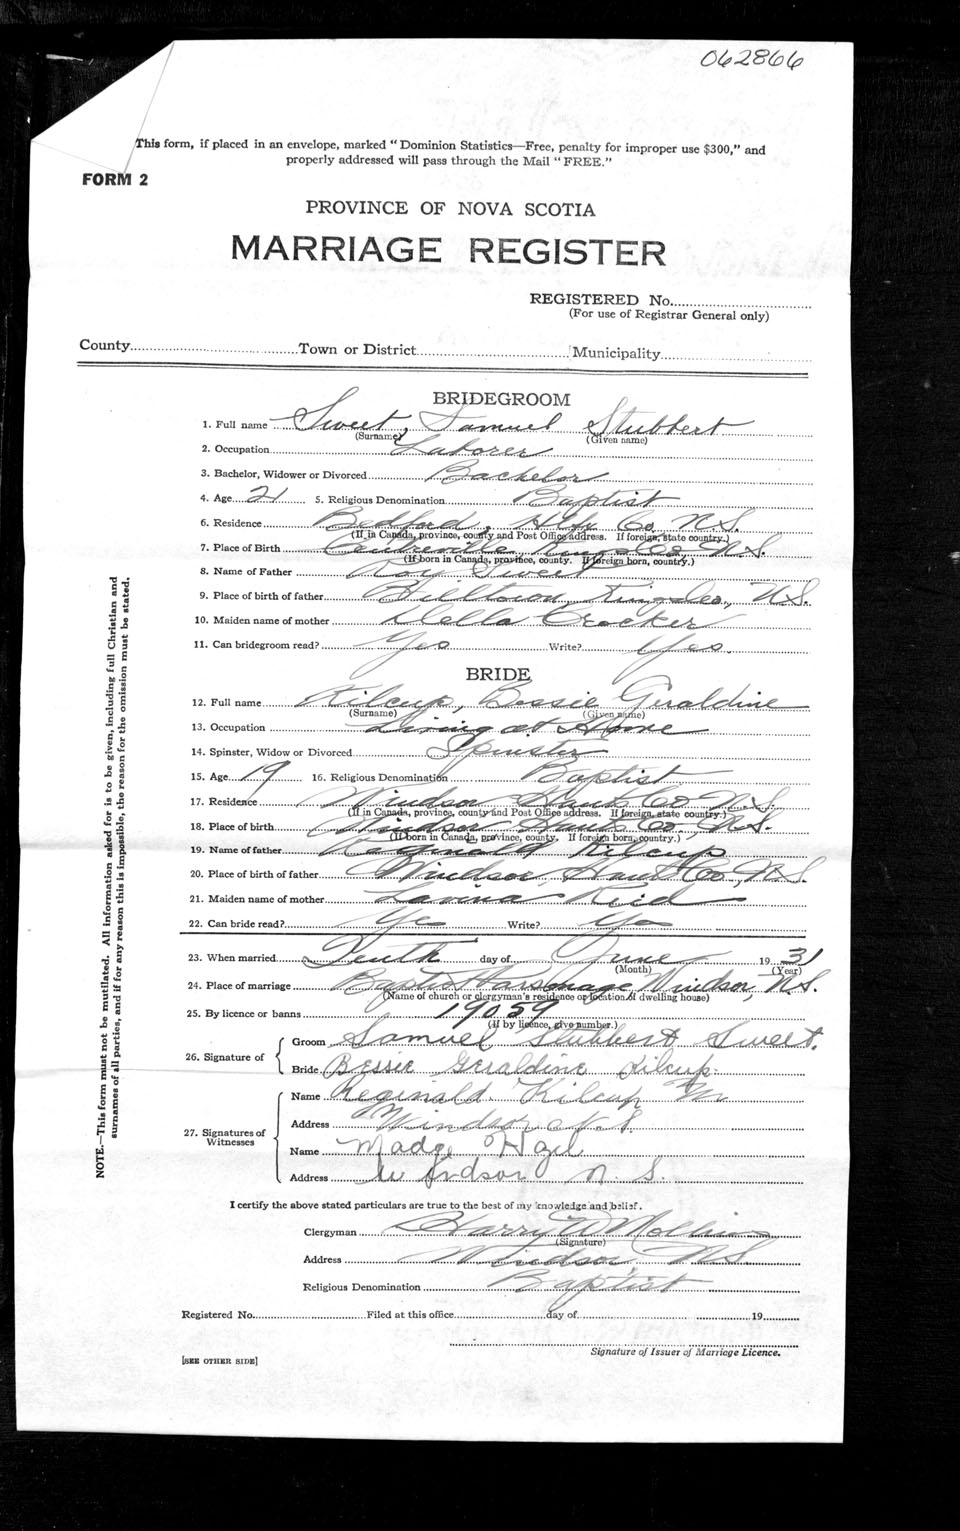 062866
This form, if placed in an envelope, marked "Dominion Statistics—Free, penalty for improper use $300," and
properly addressed will pass through the Mail "FREE."
FORM 2
PROVINCE OF NOVA SCOTIA
MARRIAGE REGISTER
REGISTERED No.
(For use of Registrar General only)
County Town or District Municipality
BRIDEGROOM
1. Full name Sweet, Samuel Stubbert
(Surname) (Given name)
2. Occupation Laborer
3. Bachelor, Widower or Divorced Bachelor
4. Age 21 5. Religious Denomination Baptist
6. Residence Bedford, Hlfx Co, N.S.
(If in Canada, province, county and Post Office address. If foreign, state country.)
7. Place of Birth Centreville Kings Co N.S.
(If born in Canada, province, county. If foreign born, country.)
8. Name of Father Roy Sweet
9. Place of birth of father Hilltown, Kings Co., N.S.
10. Maiden name of mother Della Crocker
11. Can bridegroom read? Yes Write? Yes.
BRIDE
12. Full name Kilcup, Bessie Geraldine
(Surname) (Given name)
13. Occupation Living at Home
14. Spinster, Widow or Divorced Spinster
15. Age 19 16. Religious Denomination Baptist
17. Residence Windsor Hants Co N.S.
(If in Canada, province, county and Post Office address. If foreign, state country.)
18. Place of birth Windsor Hants Co. N.S.
(If born in Canada, province, county. If foreign born, country.)
19. Name of father Reginald Kilcup
20. Place of birth of father Windsor, Hants Co., N.S.
21. Maiden name of mother Lavina Reid
22. Can bride read? Yes Write? Yes
23. When married Tenth day of June 1931
(Month) (Year)
24. Place of marriage Baptist Parsonage, Windsor, N.S.
(Name of church or clergyman's residence or location of dwelling house)
25. By licence or banns 19059
(If by licence, give number.)
26. Signature of
Groom Samuel Stubbert Sweet.
Bride Bessie Geraldine Kilcup.
27. Signatures of
Witnesses
Name Reginald Kilcup
Address Windsor N.S.
Name Madge
Address Windsor N.S.
I certify the above stated particulars are true to the best of my knowledge and belief.
Clergyman Harry
(Signature)
Address Windsor, N.S.
Religious Denomination Baptist
Registered No. Filed at this office day of 19
Signature of Issuer of Marriage Licence.
[SEE OTHER SIDE]
NOTE.—This form must not be mutilated. All information asked for is to be given, including full Christian and
surnames of all parties, and if for any reason this is impossible, the reason for the omission must be stated.